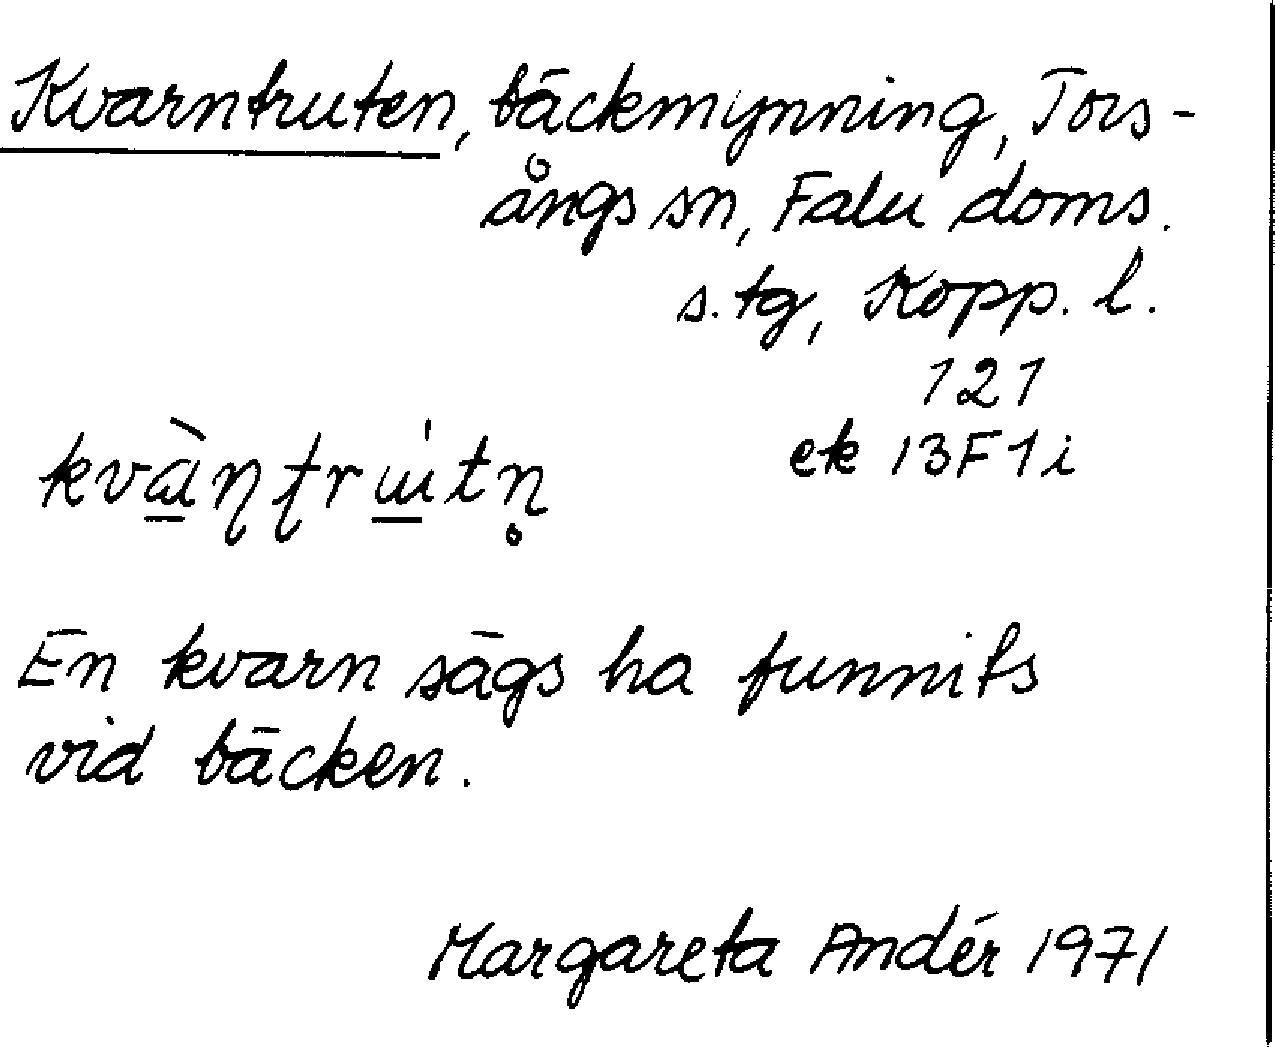 Kvarntruten, bäckmynning, Tors-
ångs sn, Falu doms.
s. tg, Kopp. l.
121
ek 13F1i
kvàɳʈrɯ́tn̥
En kvarn sägs ha funnits
vid bäcken.
Margareta Andér 1971